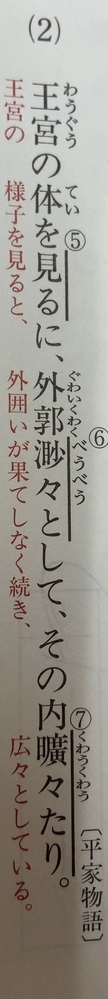 (2)
わうぐう てい ⑤ ぐわいくわく ⑥ べうべう ⑦ くわうくわう
王宮の体を見るに、外郭渺々として、その内曠々たり。〔平家物語〕
王宮の 様子を見ると、 外囲いが果てしなく続き、 広々としている。